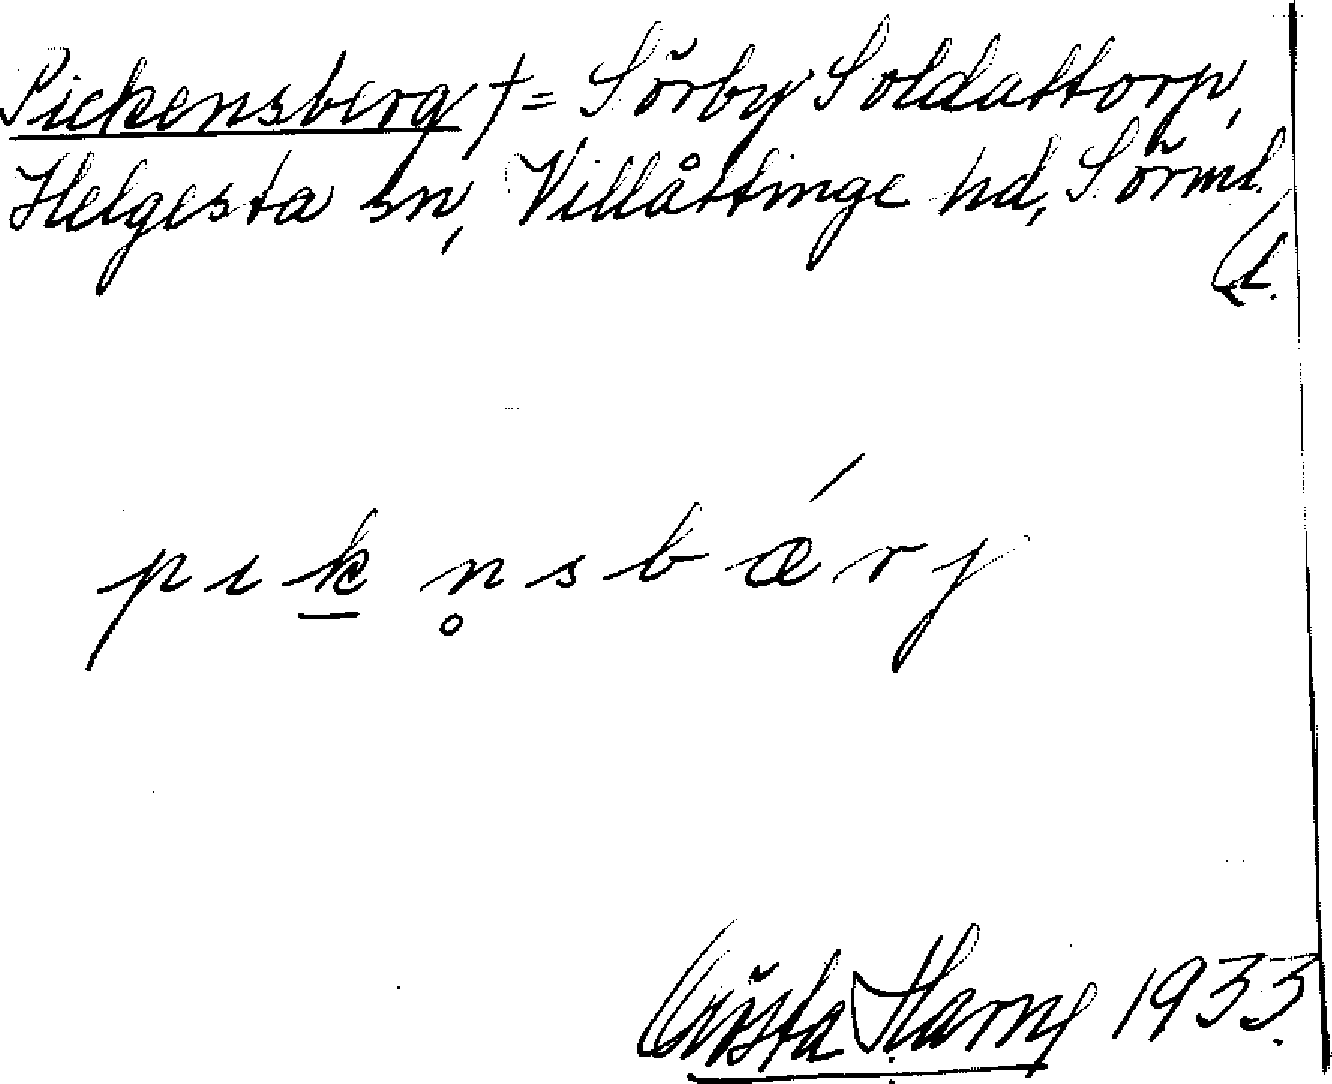 Pickensberg † = Sörby Soldattorp,
Helgesta sn, Villåttinge hd, Sörml.
pɩk̲n̥sbǽrj
Gösta 1933.